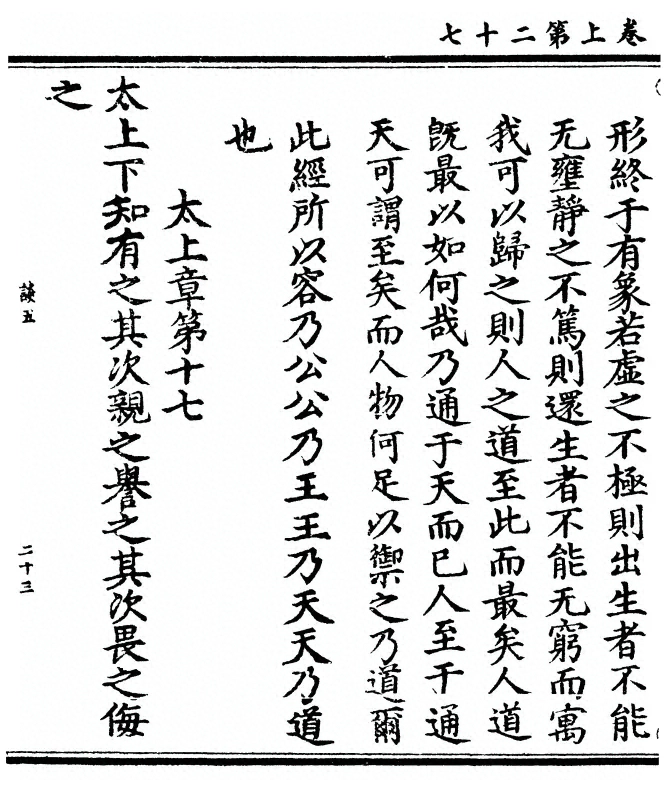 卷上第二十七
形終于有象若虛之不極則出生者不能
无壅靜之不篤則還生者不能无窮而寓
我可以歸之則人之道至此而最矣人道
旣最以如何哉乃通于天而已人至于通
天可謂至矣而人物何足以禦之乃道爾
此經所以容乃公公乃王王乃天天乃道
也
太上章第十七
太上下知有之其次親之譽之其次畏之侮
之
談五
二十三